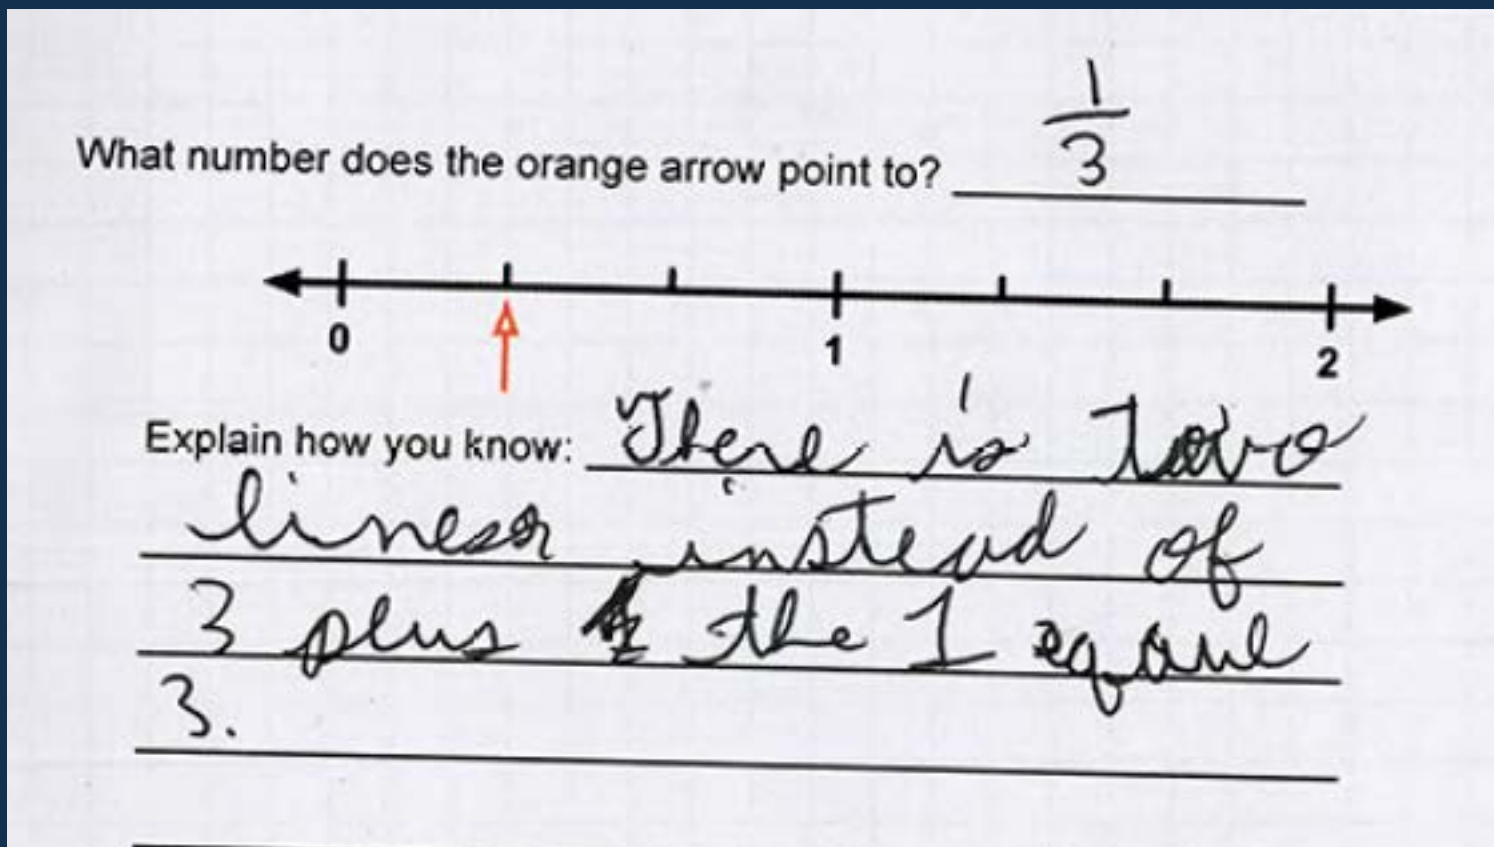 1
3
What number does the orange arrow point to?
0 1 2
Explain how you know: There is two
lines instead of
3 plus the 1 equal
3.